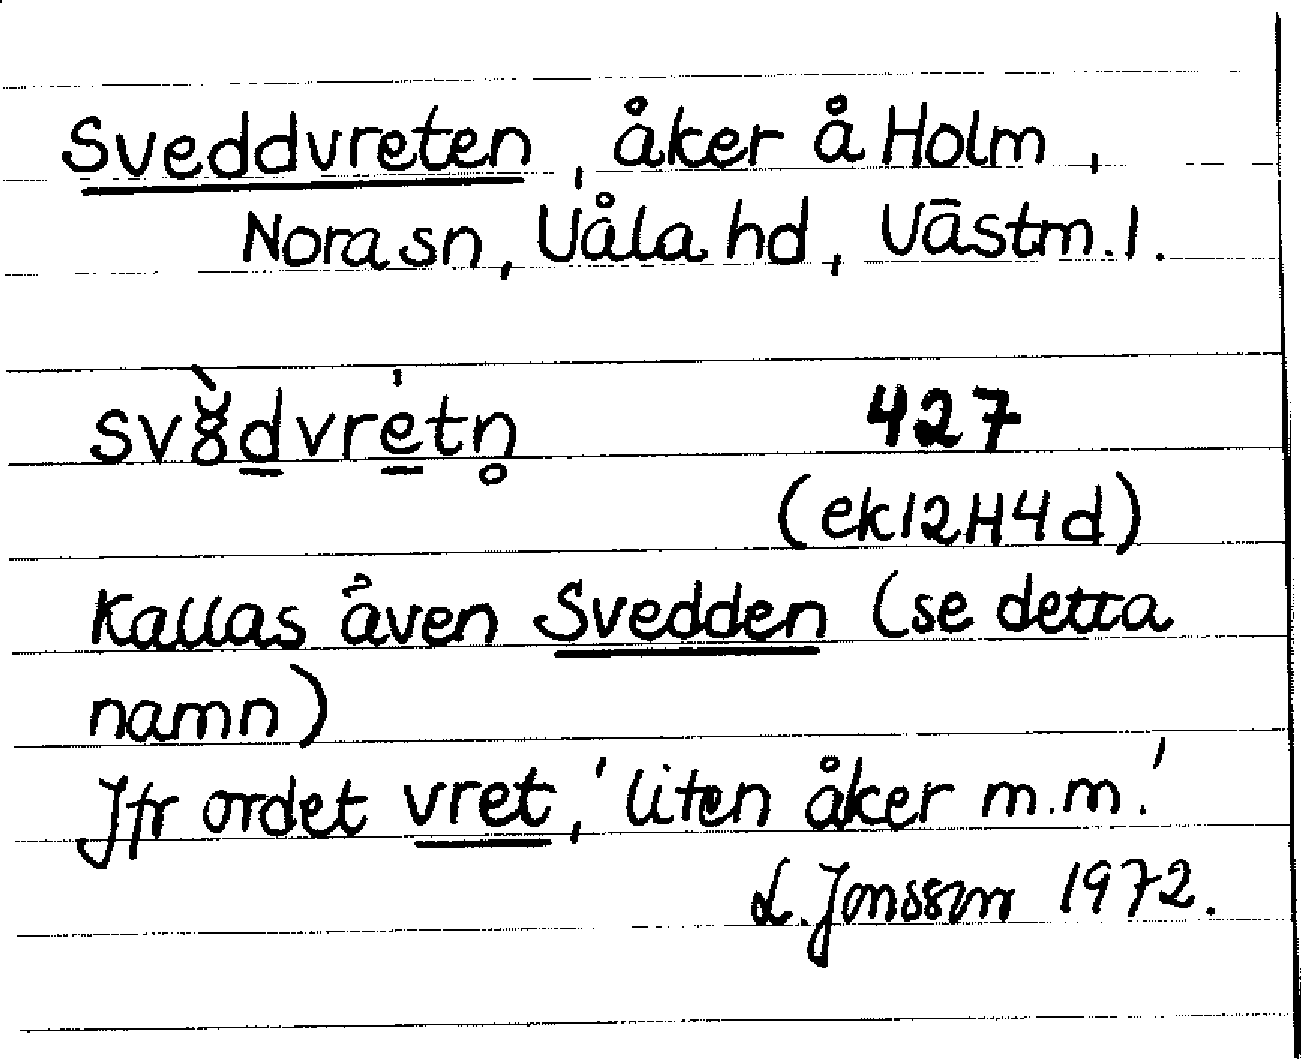 Sveddvreten, åker å Holm,
Nora sn, Våla hd, Västm. l.
427
(ek 12H4d)
Kallas även Svedden (se detta
namn)
Jfr ordet vret, 'liten åker m.m.'
L. Jonsson 1972.